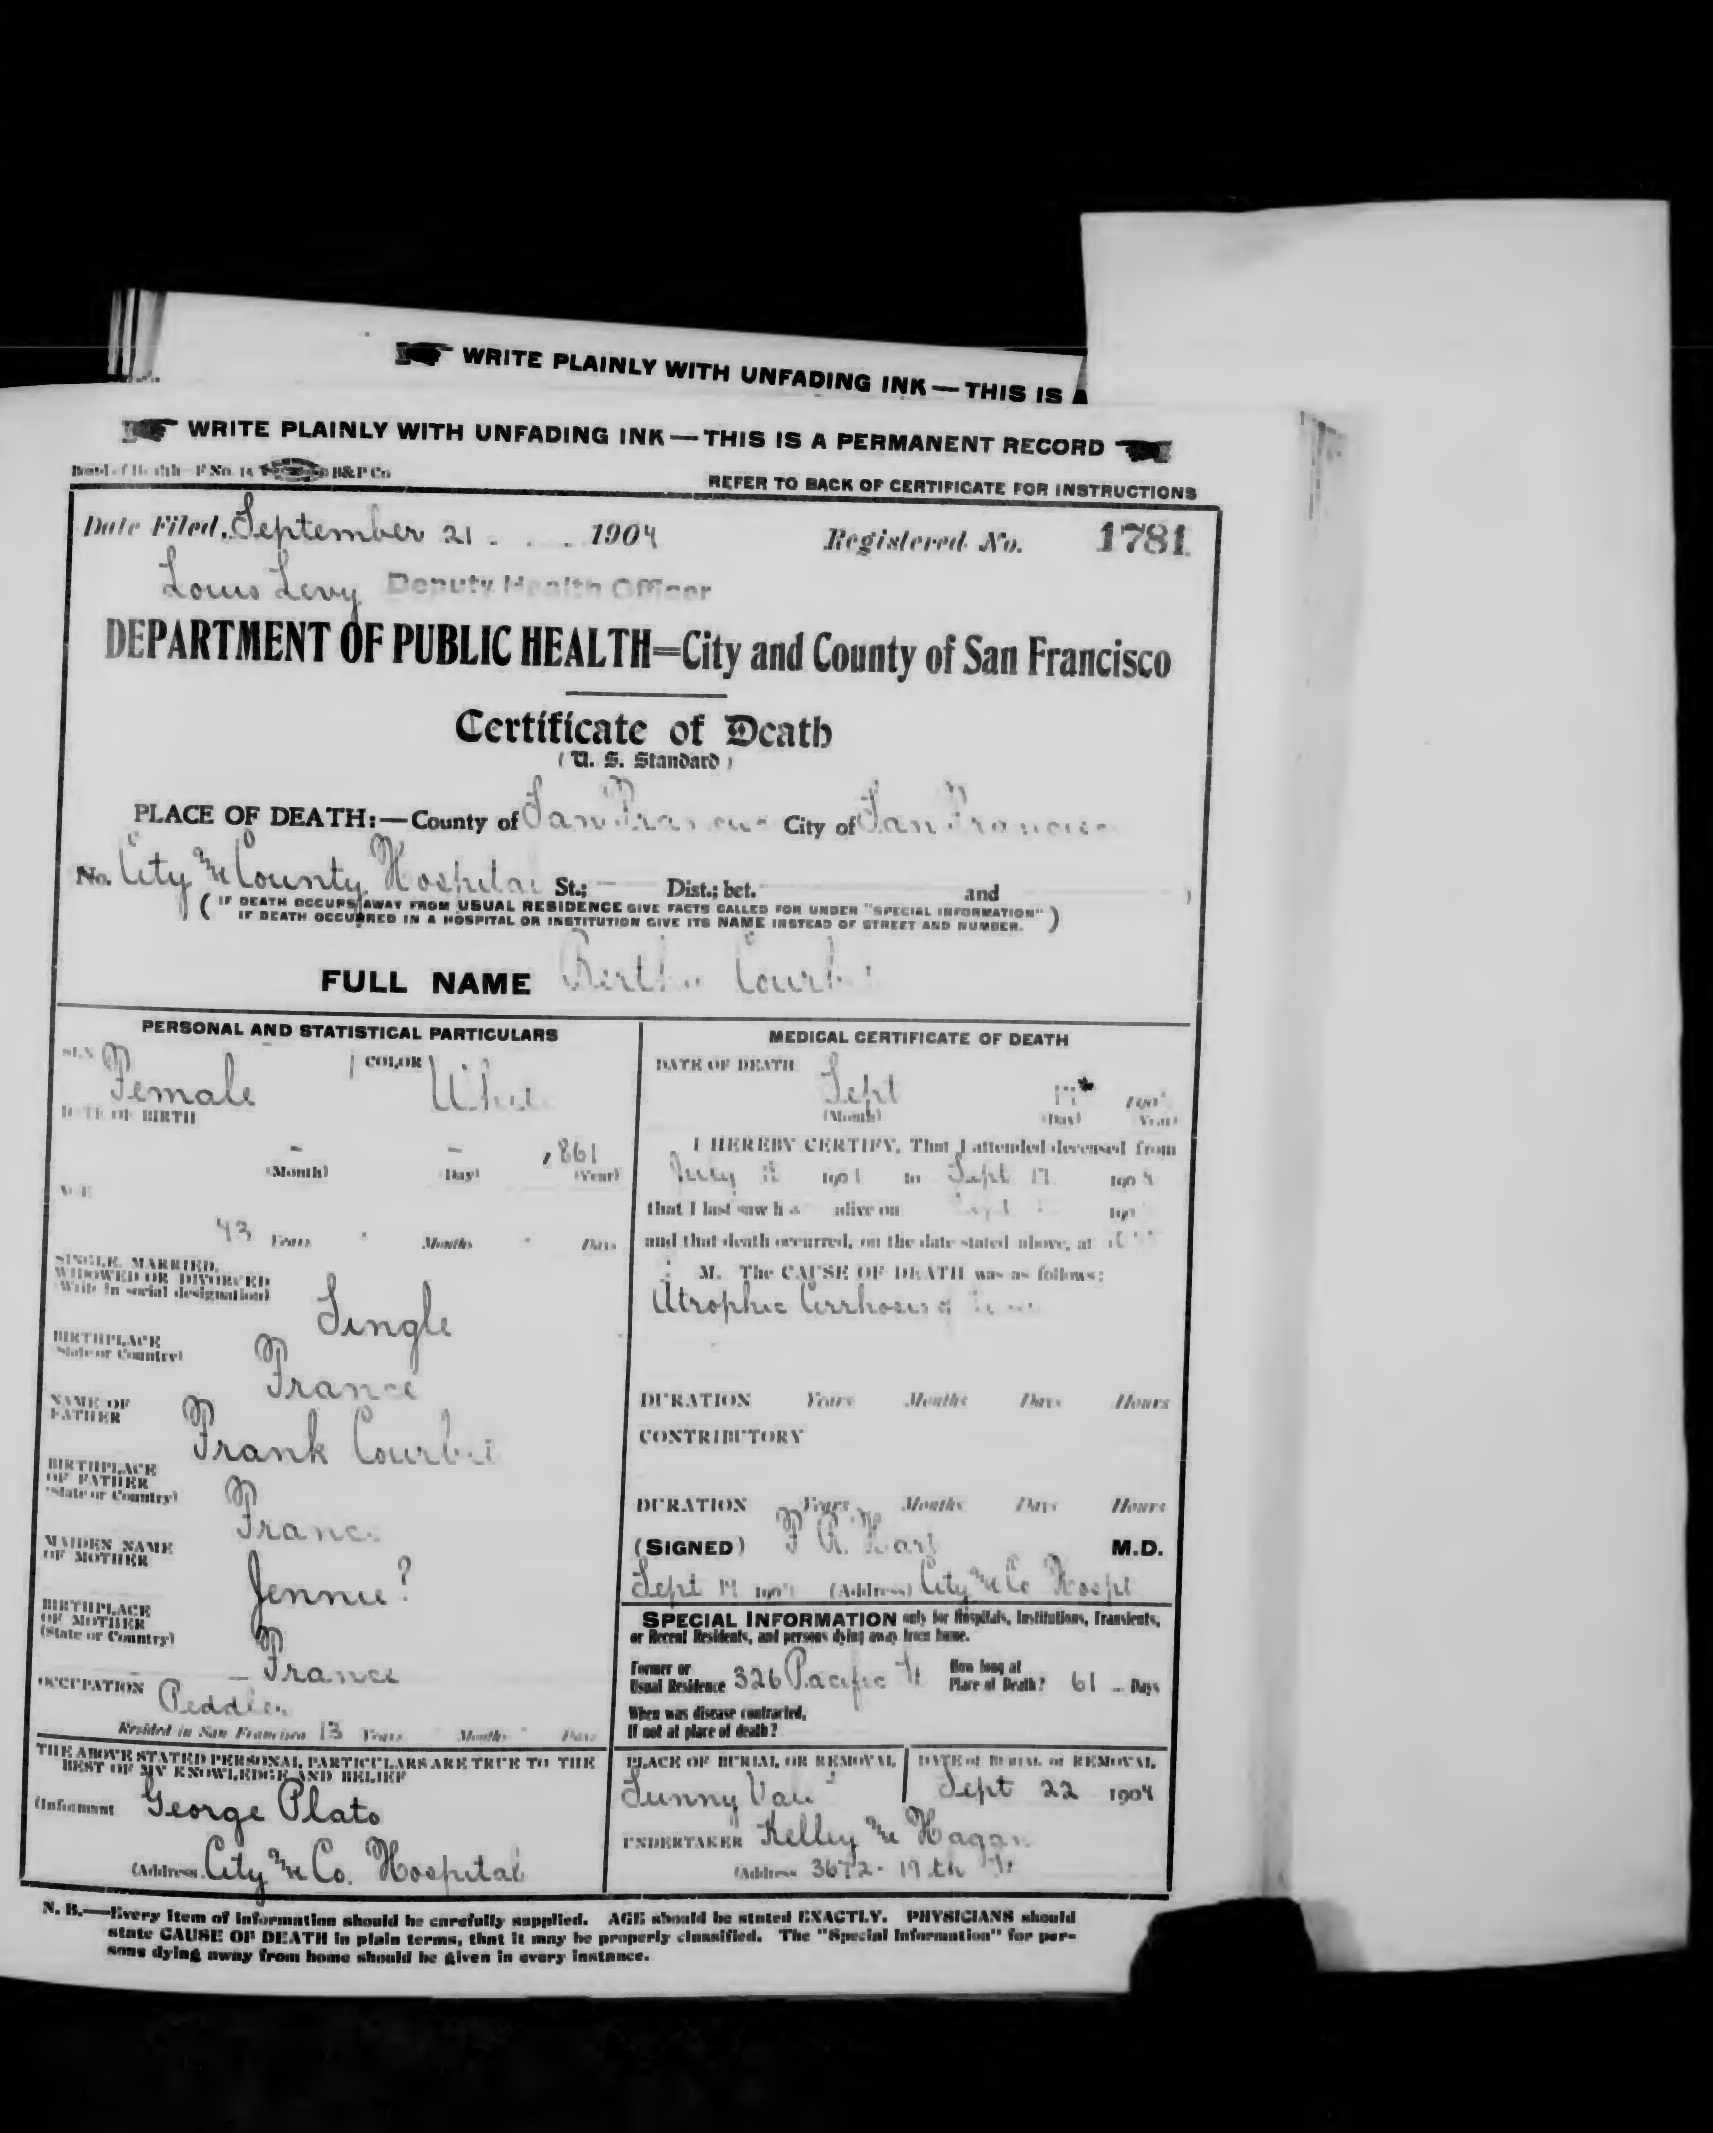 WRITE PLAINLY WITH UNFADING INK — THIS IS A
WRITE PLAINLY WITH UNFADING INK — THIS IS A PERMANENT RECORD
Board of Health—F No. 15 B&P Co
REFER TO BACK OF CERTIFICATE FOR INSTRUCTIONS
Date Filed, September 21 1904 Registered No. 1781
Louis Levy Deputy Health Officer
DEPARTMENT OF PUBLIC HEALTH=City and County of San Francisco
Certificate of Death
(U. S. Standard)
PLACE OF DEATH:—County of San Francisco City of San Francisco
No. City & County Hospital St.; — Dist.; bet. and )
( IF DEATH OCCURS AWAY FROM USUAL RESIDENCE GIVE FACTS CALLED FOR UNDER "SPECIAL INFORMATION"
IF DEATH OCCURRED IN A HOSPITAL OR INSTITUTION GIVE ITS NAME INSTEAD OF STREET AND NUMBER. )
FULL NAME Bertha
PERSONAL AND STATISTICAL PARTICULARS
SEX Female COLOR White
DATE OF BIRTH
– – 1861
(Month) (Day) (Year)
AGE
43 Years Months Days
SINGLE, MARRIED,
WIDOWED OR DIVORCED
(Write in social designation)
Single
BIRTHPLACE
(State or Country)
France
NAME OF
FATHER
Frank
BIRTHPLACE
OF FATHER
(State or Country)
France
MAIDEN NAME
OF MOTHER
Jennie ?
BIRTHPLACE
OF MOTHER
(State or Country)
France
OCCUPATION Peddler
Resided in San Francisco 13 Years Months Days
THE ABOVE STATED PERSONAL PARTICULARS ARE TRUE TO THE
BEST OF MY KNOWLEDGE AND BELIEF
(Informant George Plato
(Address City & Co. Hospital
MEDICAL CERTIFICATE OF DEATH
DATE OF DEATH
Sept 190
(Month) (Day) (Year)
I HEREBY CERTIFY, That I attended deceased from
July 190 to Sept 1904
that I last saw h alive on Sept 190
and that death occurred, on the date stated above, at
M. The CAUSE OF DEATH was as follows:
Atrophic Cirrhosis of
DURATION Years Months Days Hours
CONTRIBUTORY
DURATION Years Months Days Hours
(SIGNED) M.D.
Sept 1904 (Address) City & Co Hospt
SPECIAL INFORMATION only for Hospitals, Institutions, Transients,
or Recent Residents, and persons dying away from home.
Former or
Usual Residence 326 Pacific St
How long at
Place of Death? 61 Days
When was disease contracted,
If not at place of death?
PLACE OF BURIAL OR REMOVAL
Sunny Vale
DATE of BURIAL or REMOVAL
Sept 22 1904
UNDERTAKER Kelley & Hagan
(Address 3672 - 19th St
N. B.—Every item of information should be carefully supplied. AGE should be stated EXACTLY. PHYSICIANS should
state CAUSE OF DEATH in plain terms, that it may be properly classified. The "Special Information" for per-
sons dying away from home should be given in every instance.